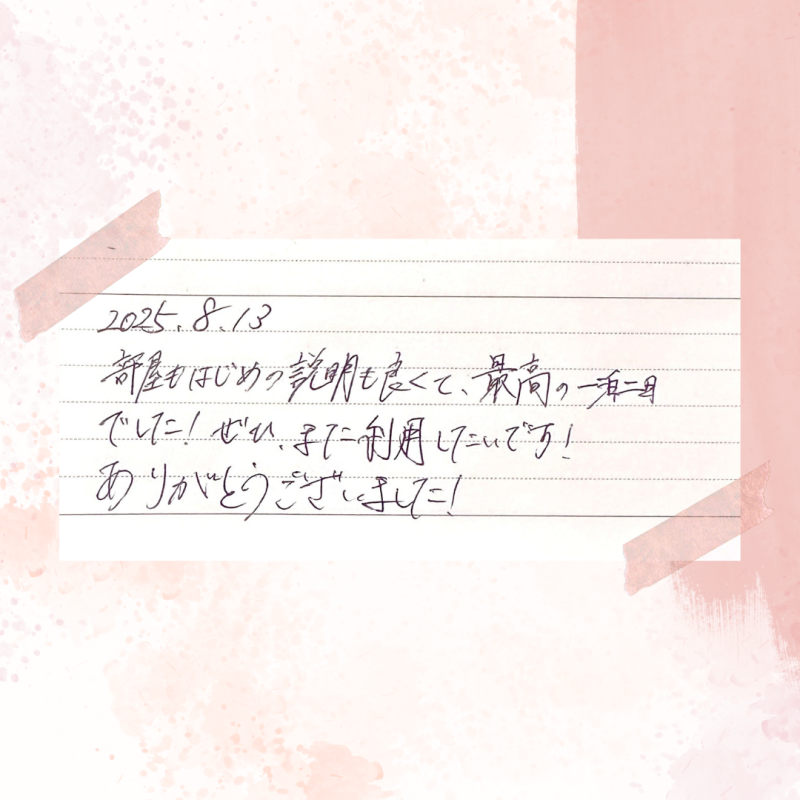 2025.8.13
部屋もはじめの説明も良くて、最高の一泊二日
でした！ぜひ、また利用したいです！
ありがとうございました！